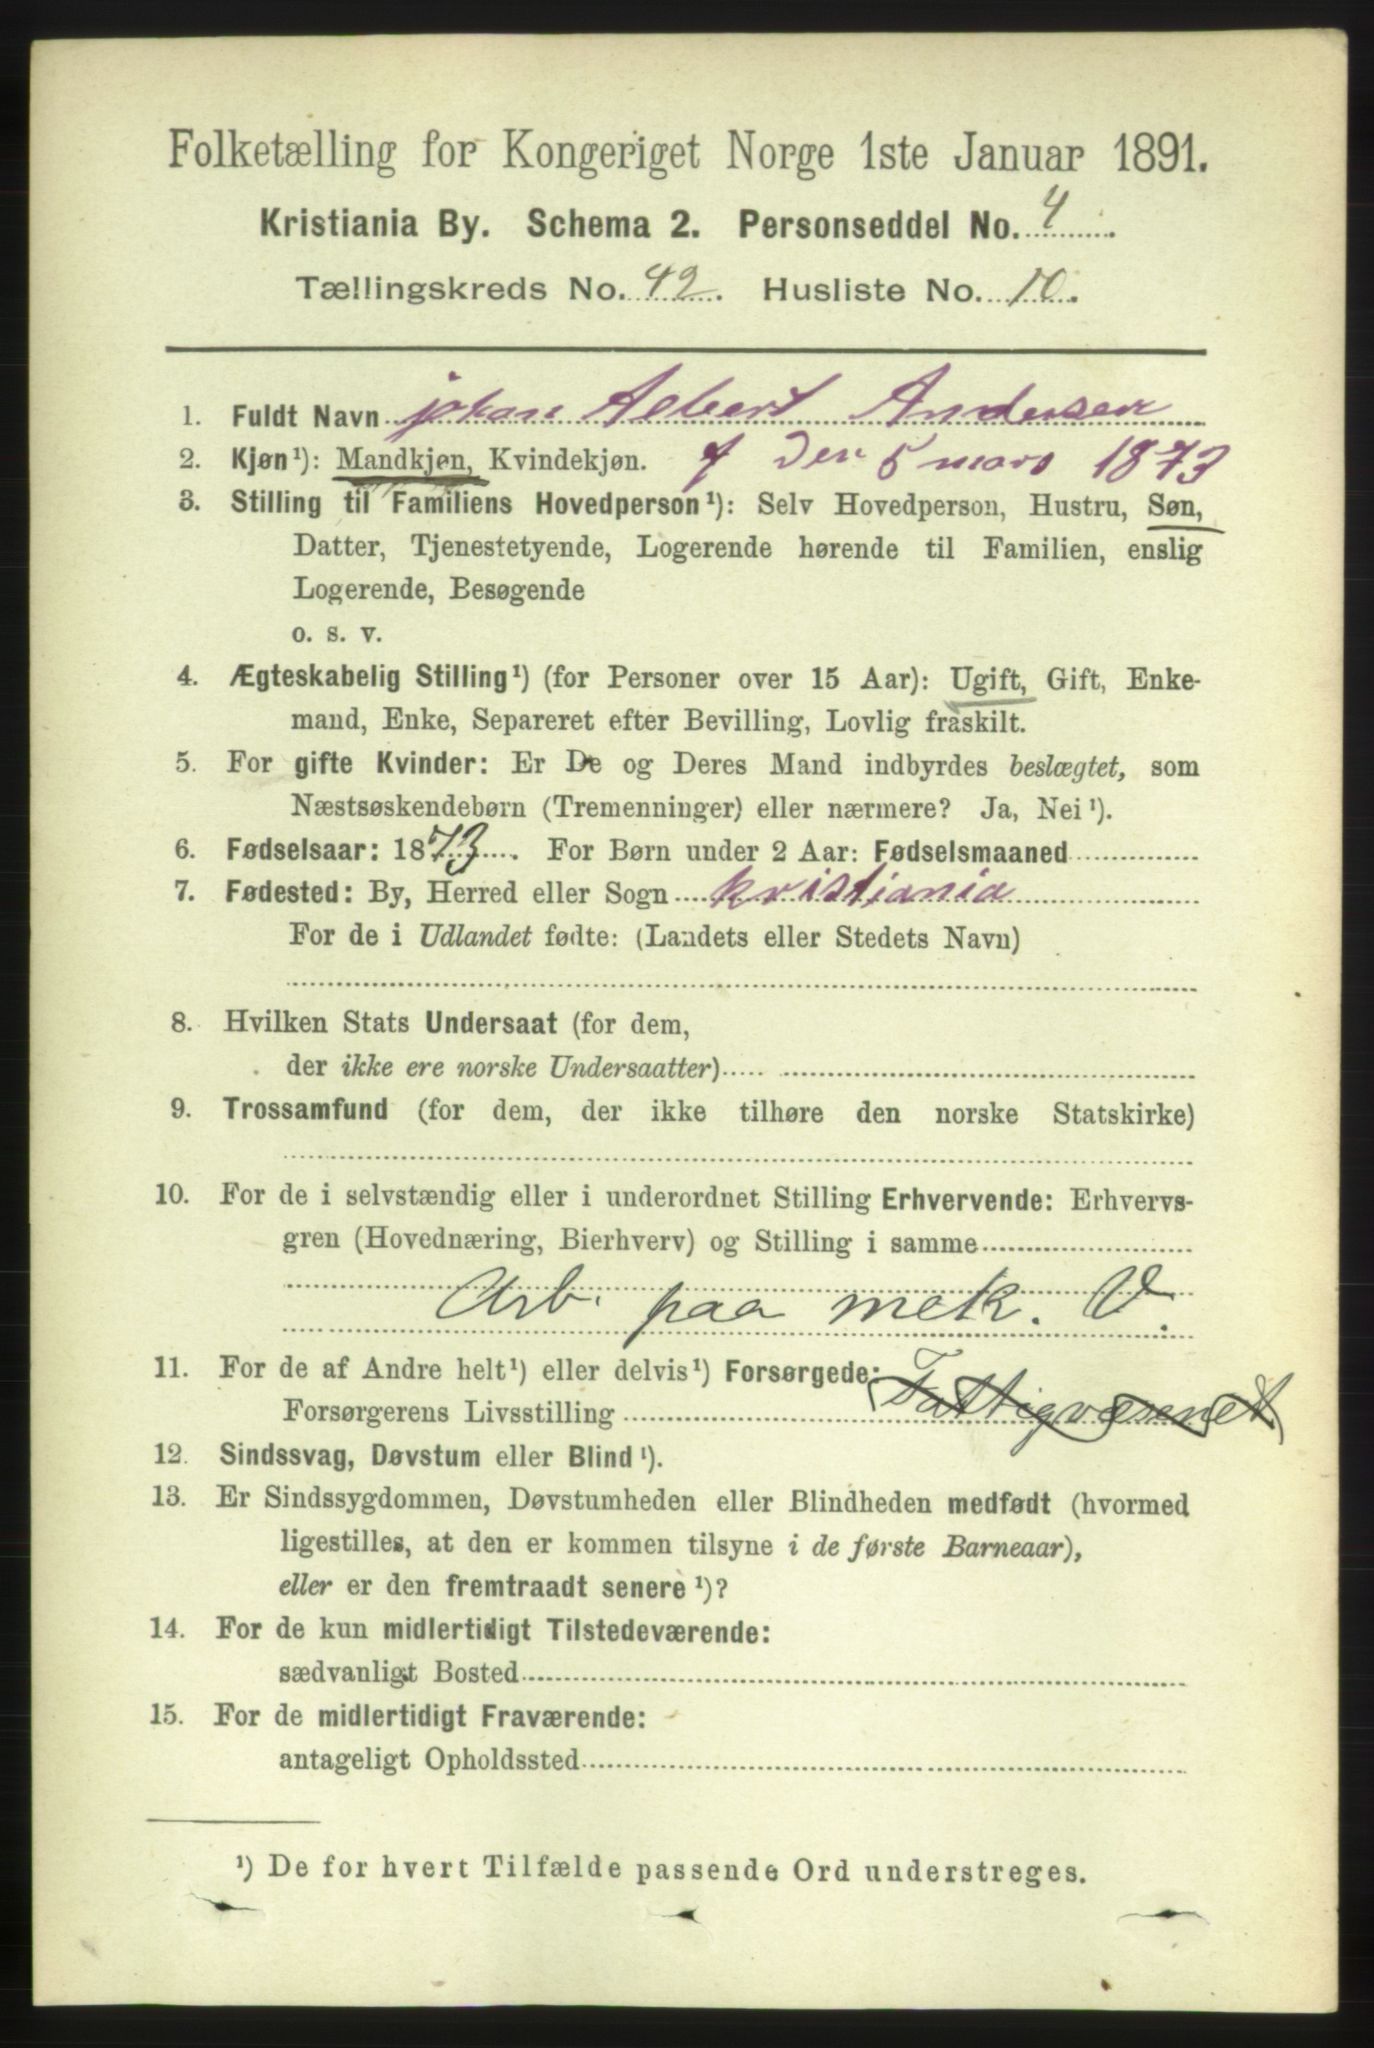 Folketælling for Kongeriget Norge 1ste Januar 1891.
Kristiania By. Schema 2. Personseddel No. 4
Tællingskreds No. 42. Husliste No. 10.
1. Fuldt Navn johan Albert Andersen
2. Kjøn¹): Mandkjøn, Kvindekjøn. f Den 5 mars 1873
3. Stilling til Familiens Hovedperson¹): Selv Hovedperson, Hustru, Søn,
Datter, Tjenestetyende, Logerende hørende til Familien, enslig
Logerende, Besøgende
o. s. v.
4. Ægteskabelig Stilling¹) (for Personer over 15 Aar): Ugift, Gift, Enke-
mand, Enke, Separeret efter Bevilling, Lovlig fraskilt.
5. For gifte Kvinder: Er De og Deres Mand indbyrdes beslægtet, som
Næstsøskendebørn (Tremenninger) eller nærmere? Ja, Nei¹).
6. Fødselsaar: 1873. For Børn under 2 Aar: Fødselsmaaned
7. Fødested: By, Herred eller Sogn kristiania
For de i Udlandet fødte: (Landets eller Stedets Navn)
8. Hvilken Stats Undersaat (for dem,
der ikke ere norske Undersaatter)
9. Trossamfund (for dem, der ikke tilhøre den norske Statskirke)
10. For de i selvstændig eller i underordnet Stilling Erhvervende: Erhvervs-
gren (Hovednæring, Bierhverv) og Stilling i samme
Arb. paa mek. V.
11. For de af Andre helt¹) eller delvis¹) Forsørgede:
Forsørgerens Livsstilling Fattigvæsenet
12. Sindssvag, Døvstum eller Blind¹).
13. Er Sindssygdommen, Døvstumheden eller Blindheden medfødt (hvormed
ligestilles, at den er kommen tilsyne i de første Barneaar),
eller er den fremtraadt senere¹)?
14. For de kun midlertidigt Tilstedeværende:
sædvanligt Bosted
15. For de midlertidigt Fraværende:
antageligt Opholdssted
¹) De for hvert Tilfælde passende Ord understreges.